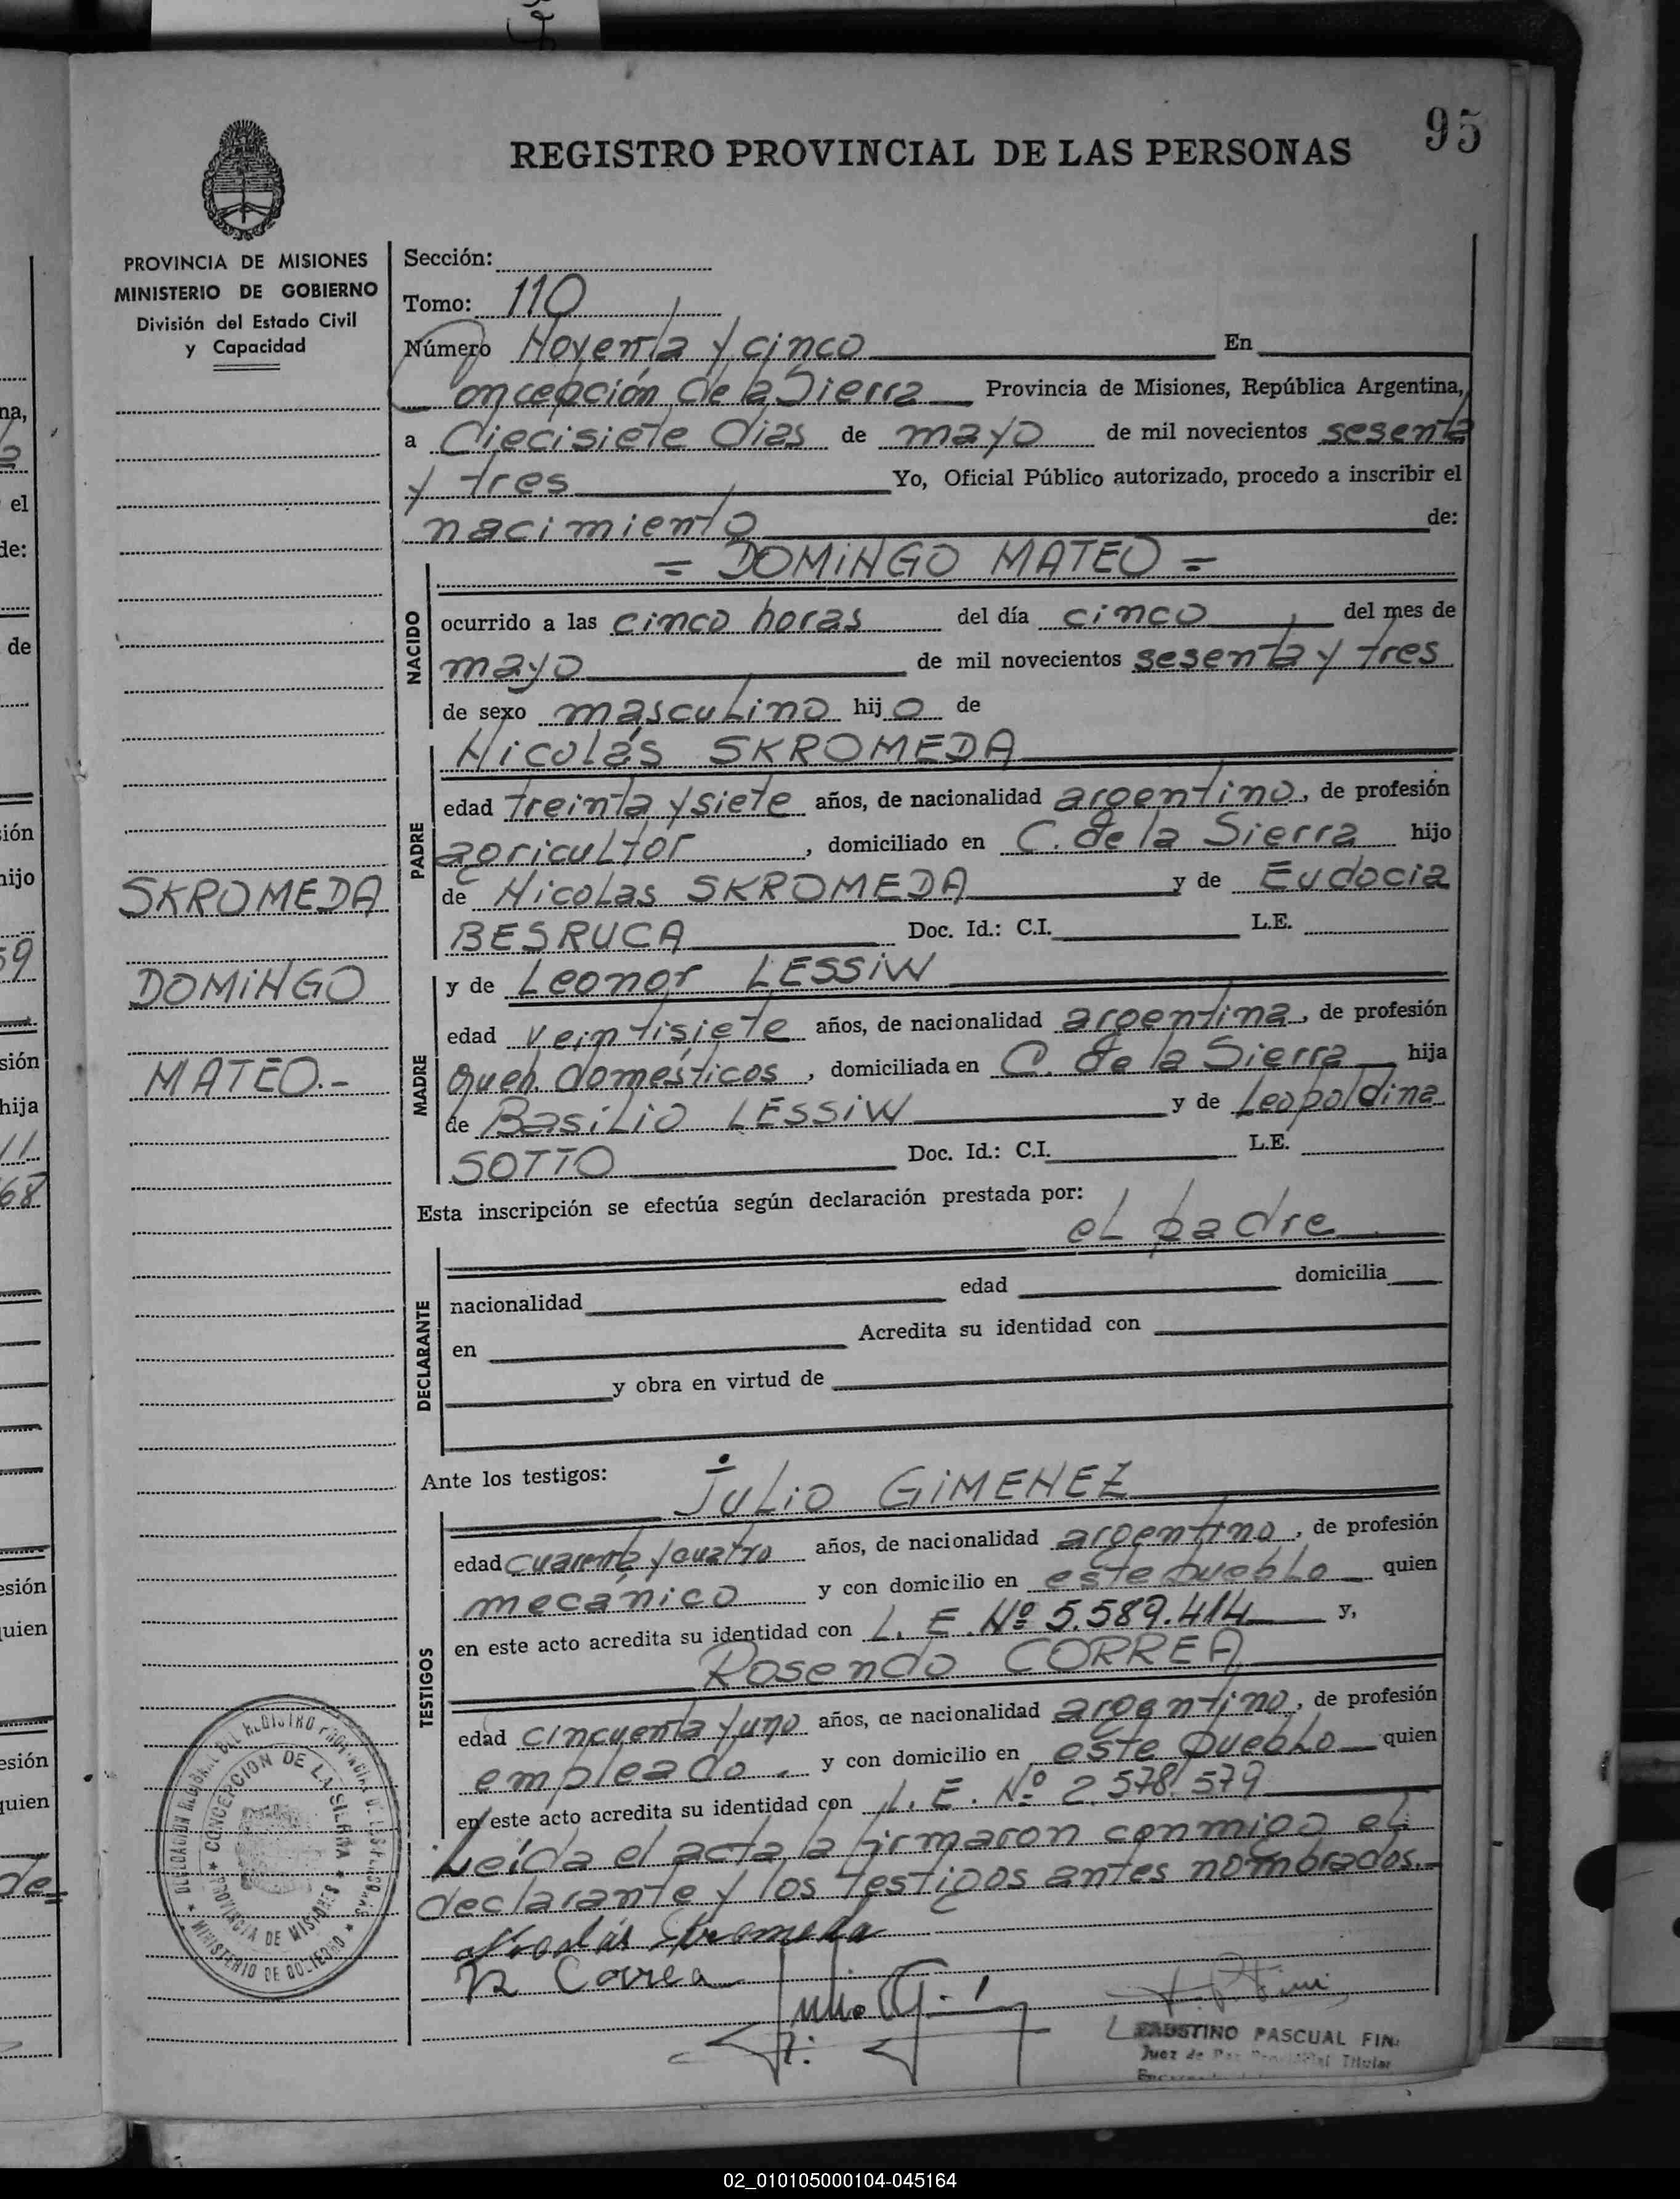 95
REGISTRO PROVINCIAL DE LAS PERSONAS
PROVINCIA DE MISIONES
MINISTERIO DE GOBIERNO
División del Estado Civil
y Capacidad
SKROMEDA
DOMINGO
MATEO.-
Sección:
Tomo: 110
Número Noventa y cinco En
Concepción de la Sierra Provincia de Misiones, República Argentina,
a diecisiete dias de mayo de mil novecientos sesenta
y tres Yo, Oficial Público autorizado, procedo a inscribir el
nacimiento de:
= DOMINGO MATEO =
NACIDO
ocurrido a las cinco horas del día cinco del mes de
mayo de mil novecientos sesenta y tres
de sexo masculino hijo de
PADRE
Nicolás SKROMEDA
edad treinta y siete años, de nacionalidad argentino, de profesión
agricultor, domiciliado en C. de la Sierra hijo
de Nicolas SKROMEDA y de Eudocia
BESRUCA Doc. Id.: C.I. L.E.
MADRE
y de Leonor LESSIW
edad veintisiete años, de nacionalidad argentina, de profesión
queh. domésticos, domiciliada en C. de la Sierra hija
de Basilio LESSIW y de Leopoldina
SOTTO Doc. Id.: C.I. L.E.
Esta inscripción se efectúa según declaración prestada por:
el padre
DECLARANTE
nacionalidad edad domicilia
en Acredita su identidad con
y obra en virtud de
Ante los testigos:
Julio GIMENEZ
TESTIGOS
edad cuarenta y cuatro años, de nacionalidad argentino, de profesión
mecánico y con domicilio en este pueblo quien
en este acto acredita su identidad con L. E. Nº 5.589.414 y,
Rosendo CORREA
edad cincuenta y uno años, de nacionalidad argentino, de profesión
empleado. y con domicilio en este pueblo quien
en este acto acredita su identidad con L. E. Nº 2.578.579
Leída el acta, la firmaron conmigo el
declarante y los testigos antes nombrados.-
Nicolás Skromeda
R Correa
Julio G.
FAUSTINO PASCUAL FINI
Juez de Paz Provincial Titular
DELEGACION REGIONAL DEL REGISTRO PROVINCIAL DE LAS PERSONAS
CONCEPCION DE LA SIERRA
PROVINCIA DE MISIONES
MINISTERIO DE GOBIERNO
02_010105000104-045164